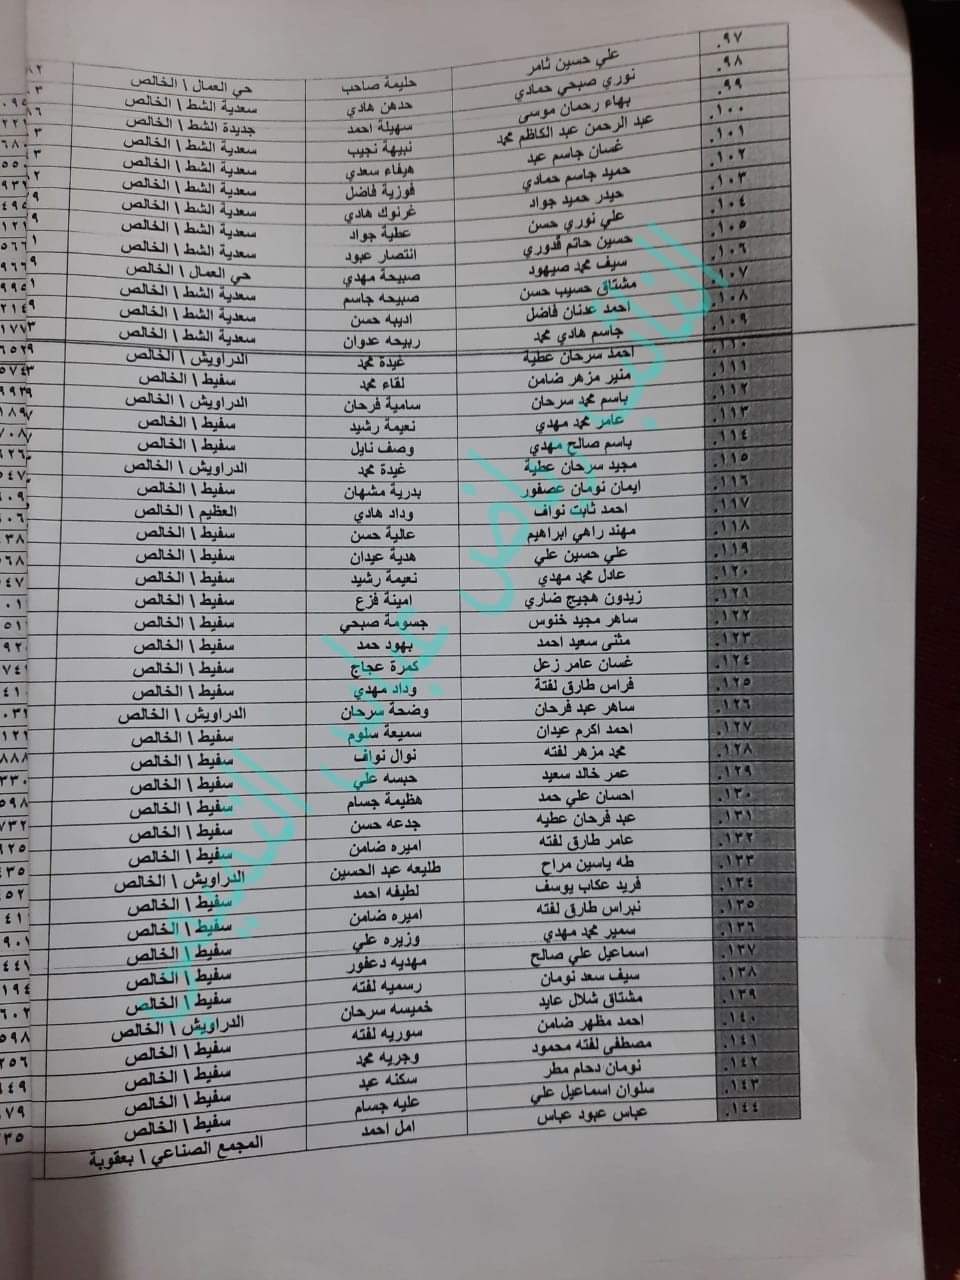 ٩٧. علي حسين ثامر حليمة صاحب حي العمال \ الخالص
٩٨. نوري صبحي حمادي حدهن هادي سعدية الشط \ الخالص
٩٩. بهاء رحمان موسى سهيلة احمد جديدة الشط \ الخالص
١٠٠. عبد الرحمن عبد الكاظم محمد نبيهة نجيب سعدية الشط \ الخالص
١٠١. غسان جاسم عبد هيفاء سعدي سعدية الشط \ الخالص
١٠٢. حميد جاسم حمادي فوزية فاضل سعدية الشط \ الخالص
١٠٣. حيدر حميد جواد غرنوك هادي سعدية الشط \ الخالص
١٠٤. علي نوري حسن عطية جواد سعدية الشط \ الخالص
١٠٥. حسين حاتم قدوري انتصار عبود سعدية الشط \ الخالص
١٠٦. سيف محمد صيهود صبيحة مهدي حي العمال \ الخالص
١٠٧. مشتاق حسيب حسن صبيحه جاسم سعدية الشط \ الخالص
١٠٨. احمد عدنان فاضل اديبه حسن سعدية الشط \ الخالص
١٠٩. جاسم هادي محمد ربيحه عدوان سعدية الشط \ الخالص
١١٠. احمد سرحان عطية غيدة محمد الدراويش \ الخالص
١١١. منير مزهر ضامن لقاء محمد سفيط \ الخالص
١١٢. باسم محمد سرحان سامية فرحان الدراويش \ الخالص
١١٣. عامر محمد مهدي نعيمة رشيد سفيط \ الخالص
١١٤. باسم صالح مهدي وصف نايل سفيط \ الخالص
١١٥. مجيد سرحان عطية غيدة محمد الدراويش \ الخالص
١١٦. ايمان نومان عصفور بدرية مشهان سفيط \ الخالص
١١٧. احمد ثابت نواف وداد هادي العظيم \ الخالص
١١٨. مهند راهي ابراهيم عالية حسن سفيط \ الخالص
١١٩. علي حسين علي هدية عيدان سفيط \ الخالص
١٢٠. عادل محمد مهدي نعيمة رشيد سفيط \ الخالص
١٢١. زيدون هجيج ضاري امينة فزع سفيط \ الخالص
١٢٢. ساهر مجيد خنوس جسومة صبحي سفيط \ الخالص
١٢٣. مثنى سعيد احمد بهود حمد سفيط \ الخالص
١٢٤. غسان عامر زعل كمرة عجاج سفيط \ الخالص
١٢٥. فراس طارق لفتة وداد مهدي سفيط \ الخالص
١٢٦. ساهر عبد فرحان وضحة سرحان الدراويش \ الخالص
١٢٧. احمد اكرم عيدان سميعة سلوم سفيط \ الخالص
١٢٨. محمد مزهر لفته نوال نواف سفيط \ الخالص
١٢٩. عمر خالد سعيد حبسه علي سفيط \ الخالص
١٣٠. احسان علي حمد هظيمة جسام سفيط \ الخالص
١٣١. عبد فرحان عطيه جدعه حسن سفيط \ الخالص
١٣٢. عامر طارق لفته اميره ضامن سفيط \ الخالص
١٣٣. طه ياسين مراح طليعه عبد الحسين الدراويش \ الخالص
١٣٤. فريد عكاب يوسف لطيفه احمد سفيط \ الخالص
١٣٥. نبراس طارق لفته اميره ضامن سفيط \ الخالص
١٣٦. سمير محمد مهدي وزيره علي سفيط \ الخالص
١٣٧. اسماعيل علي صالح مهديه دعفور سفيط \ الخالص
١٣٨. سيف سعد نومان رسميه لفته سفيط \ الخالص
١٣٩. مشتاق شلال عايد خميسه سرحان الدراويش \ الخالص
١٤٠. احمد مظهر ضامن سوريه لفته سفيط \ الخالص
١٤١. مصطفى لفته محمود وجريه محمد سفيط \ الخالص
١٤٢. نومان دحام مطر سكنه عبد سفيط \ الخالص
١٤٣. سلوان اسماعيل علي عليه جسام سفيط \ الخالص
١٤٤. عباس عبود عباس امل احمد المجمع الصناعي \ بعقوبة
النائب رياض عباس التميمي